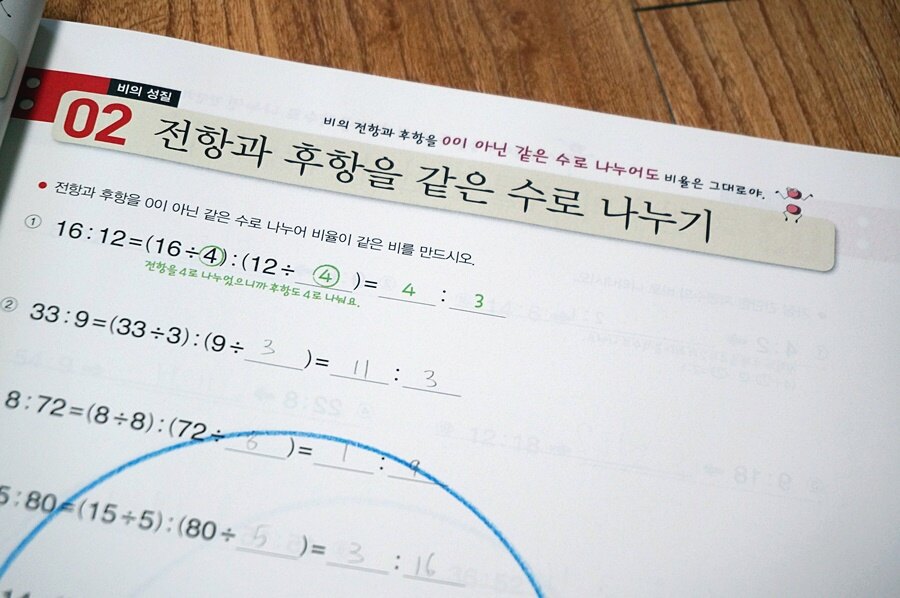 비의 성질
비의 전항과 후항을 0이 아닌 같은 수로 나누어도 비율은 그대로야.
02 전항과 후항을 같은 수로 나누기
● 전항과 후항을 0이 아닌 같은 수로 나누어 비율이 같은 비를 만드시오.
① 16:12=(16÷4):(12÷4)=4:3
전항을 4로 나누었으니까 후항도 4로 나눠요.
② 33:9=(33÷3):(9÷3)=11:3
8:72=(8÷8):(72÷8)=1:9
5:80=(15÷5):(80÷5)=3:16